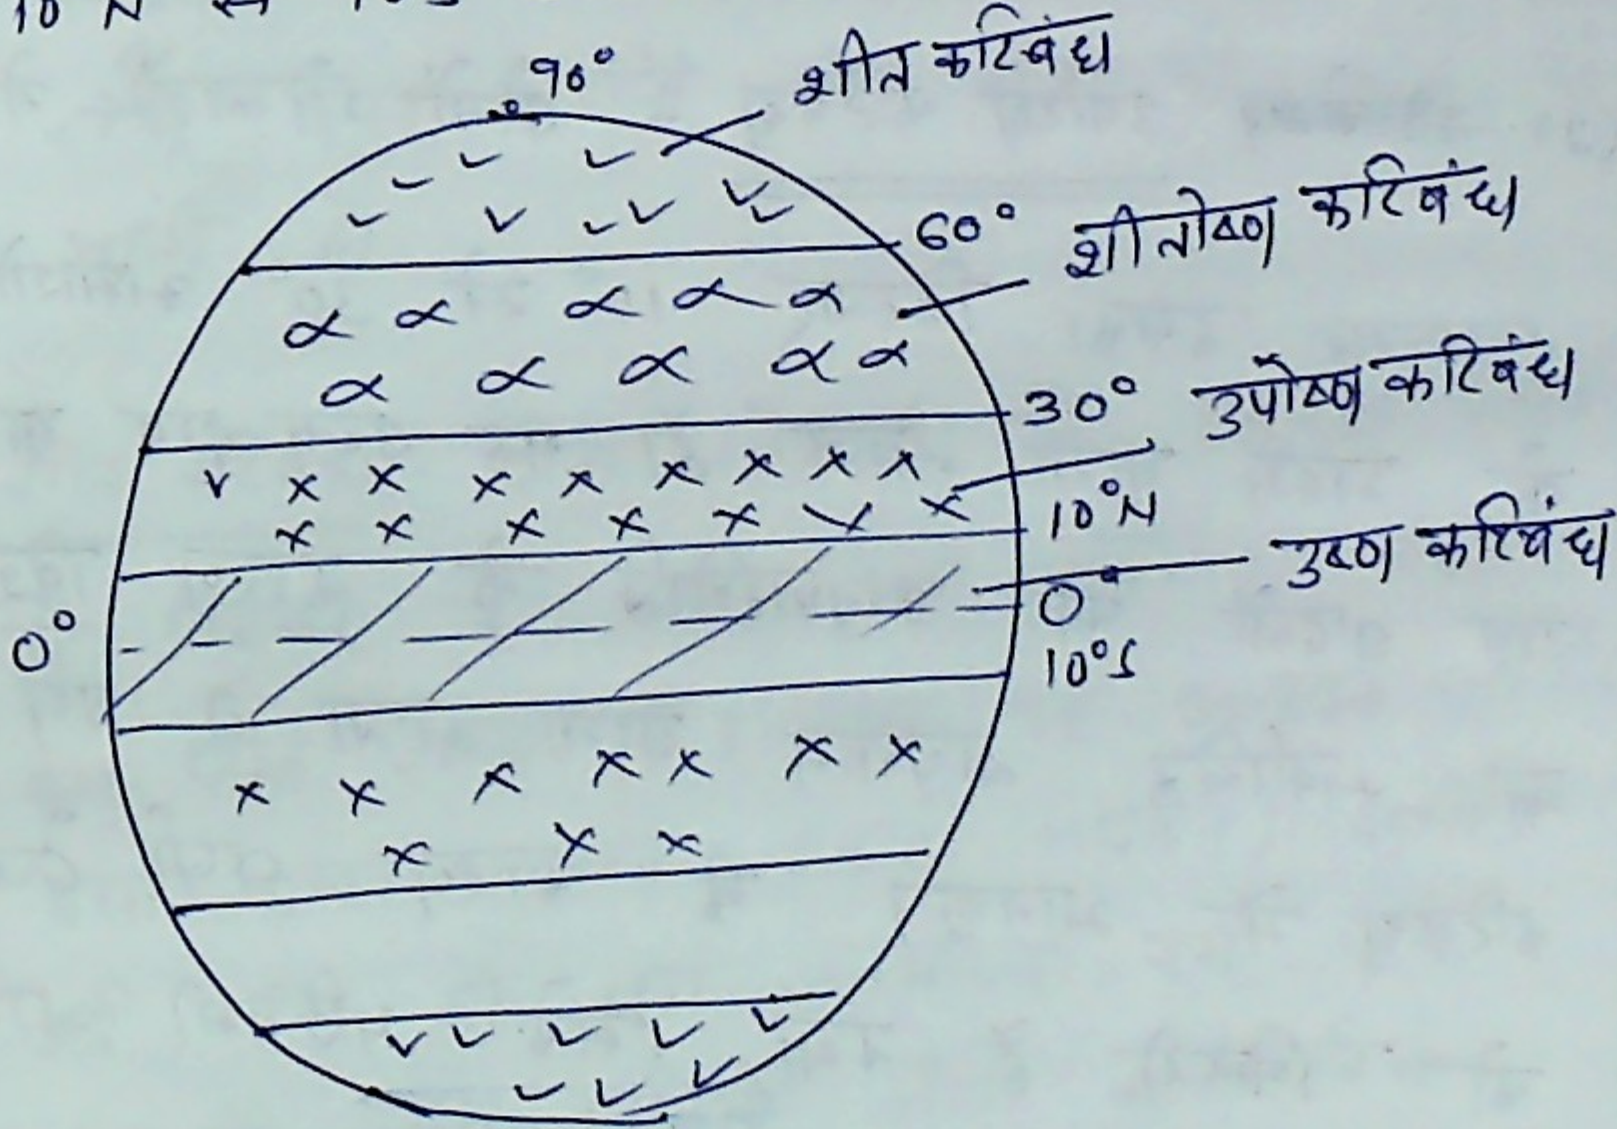 90° शीत कटिबंध
60° शीतोष्ण कटिबंध
30° उपोष्ण कटिबंध
10°N
0° 0° उष्ण कटिबंध
10°S